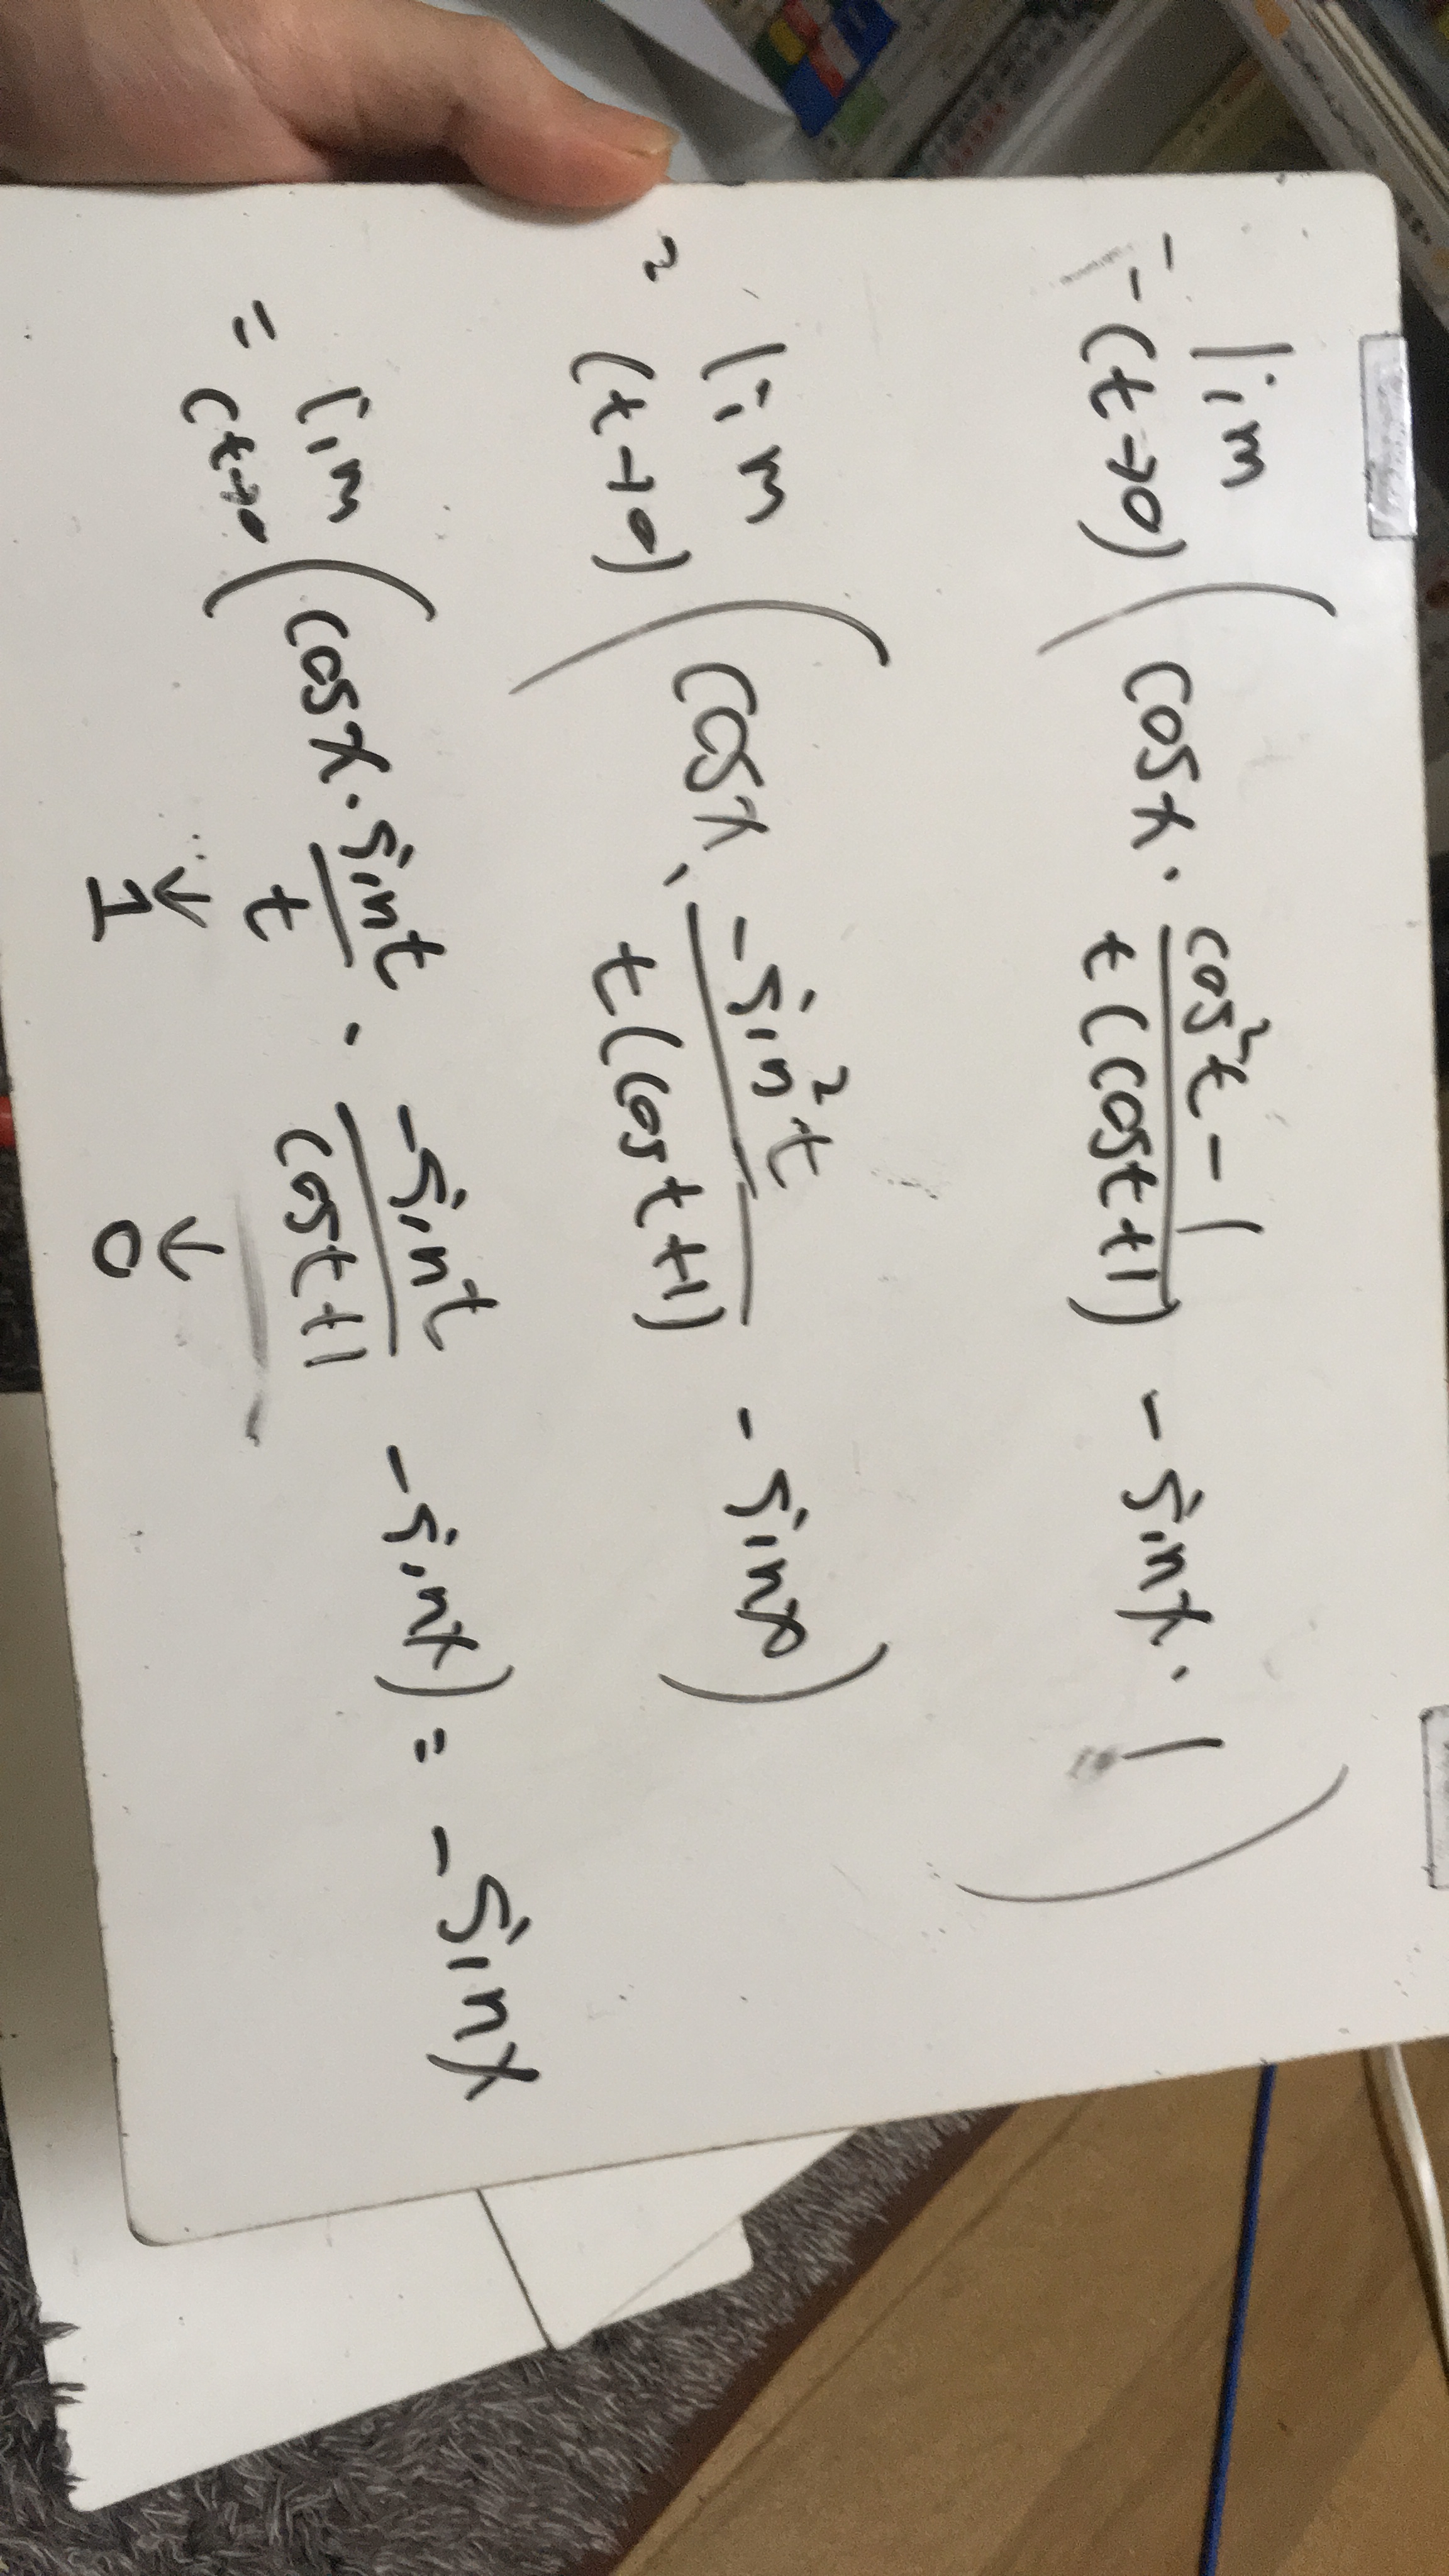 = lim (t→0) ( cosx · cos²t - 1 / t(cost+1) - sinx · 1 )
= lim (t→0) ( cosx · -sin²t / t(cost+1) - sinx )
= lim (t→0 ( cosx · sint / t · -sint / cost+1 - sinx) = - sinx
↓ 1 ↓ 0